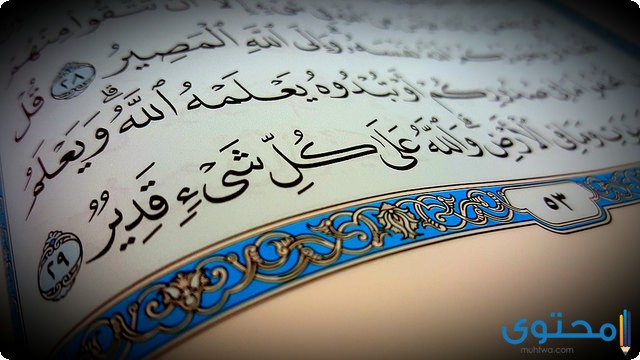 مِنْهُمْ
نَفْسَهُۥ ۗ وَإِلَى ٱللَّهِ ٱلْمَصِيرُ ٢٨ قُلْ
صُدُورِكُمْ أَوْ تُبْدُوهُ يَعْلَمْهُ ٱللَّهُ ۗ وَيَعْلَمُ
وَمَا فِى ٱلْأَرْضِ ۗ وَٱللَّهُ عَلَىٰ كُلِّ شَىْءٍ قَدِيرٌ ٢٩
٥٣
محتوى
muhtwa.com